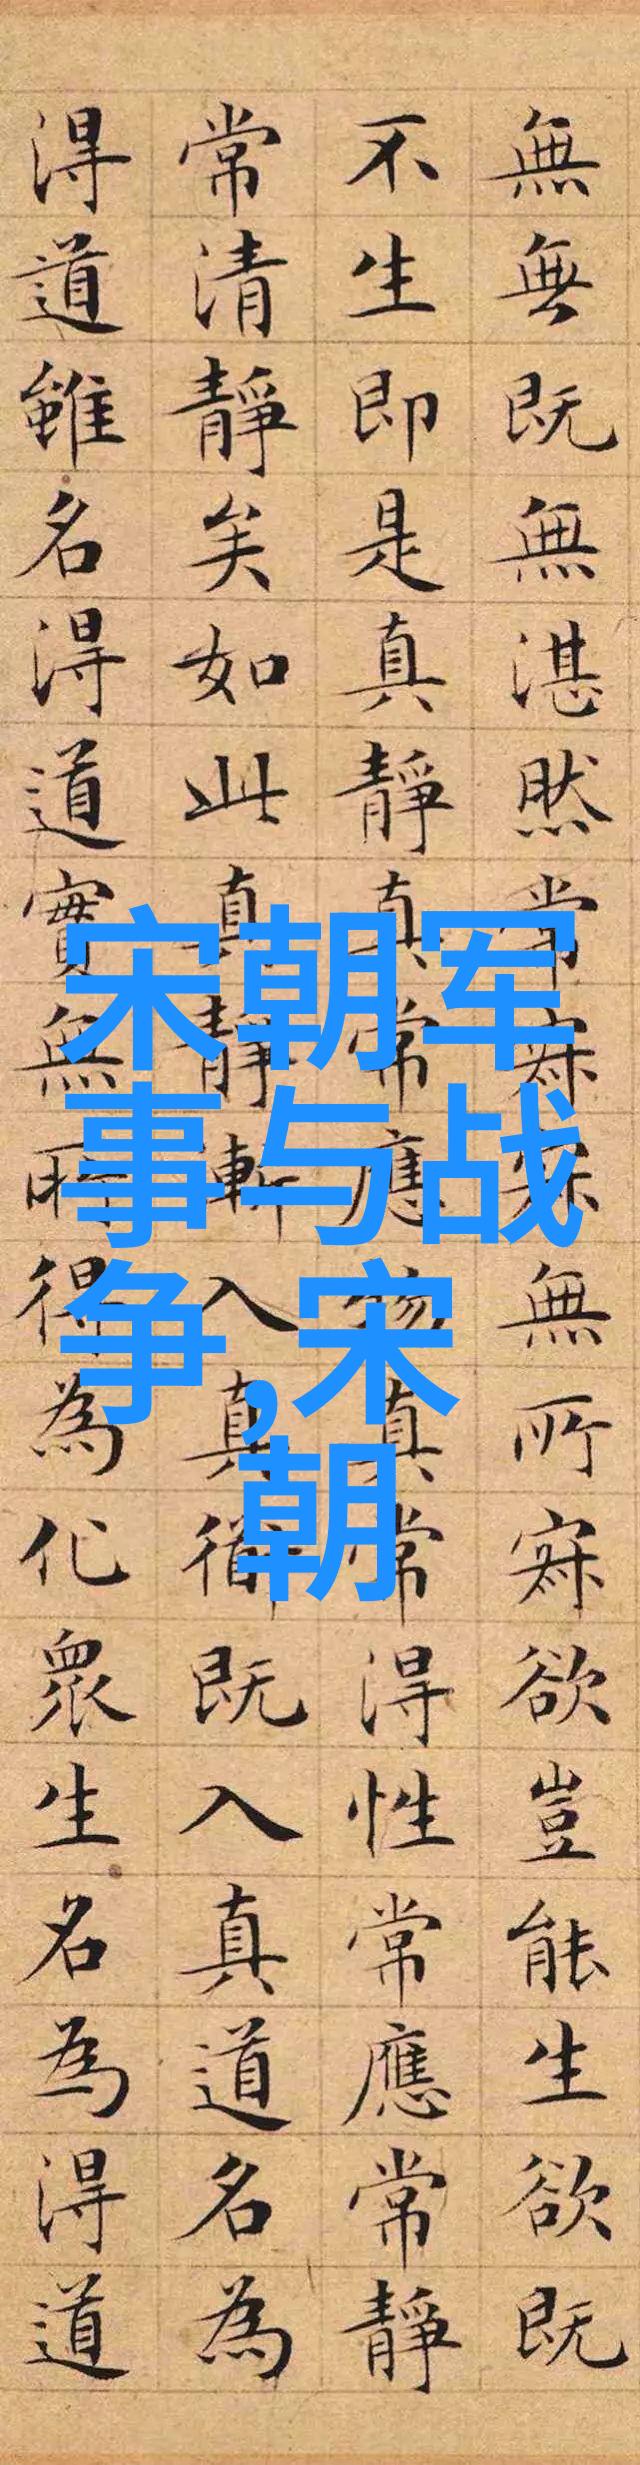 無無既無湛然常寂寂無所寂欲豈能生欲既
不生即是真靜真常應物真常得性常應常靜
常清靜矣如此真靜漸入真衜既入真道名為
得道雖名得道實無所得為化衆生名為得道
宋朝军
事与战
争,宋
朝